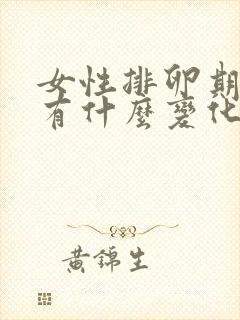 女性排卵期
有什麼變化
黃錦生